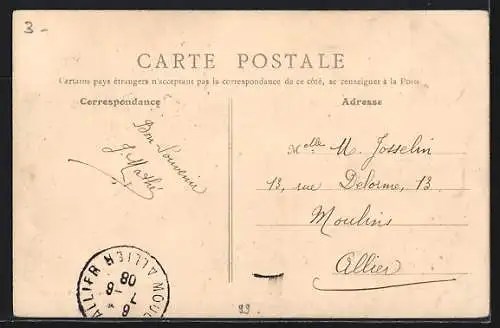 3-
CARTE POSTALE
Certains pays étrangers n'acceptant pas la correspondance de ce côté, se renseigner à la Poste
Correspondance
Adresse
Bon Souvenir
J. Mathé
Melle M. Josselin
13, rue Delorme, 13
Moulins
Allier
ALLIER
ALLIER
08
99